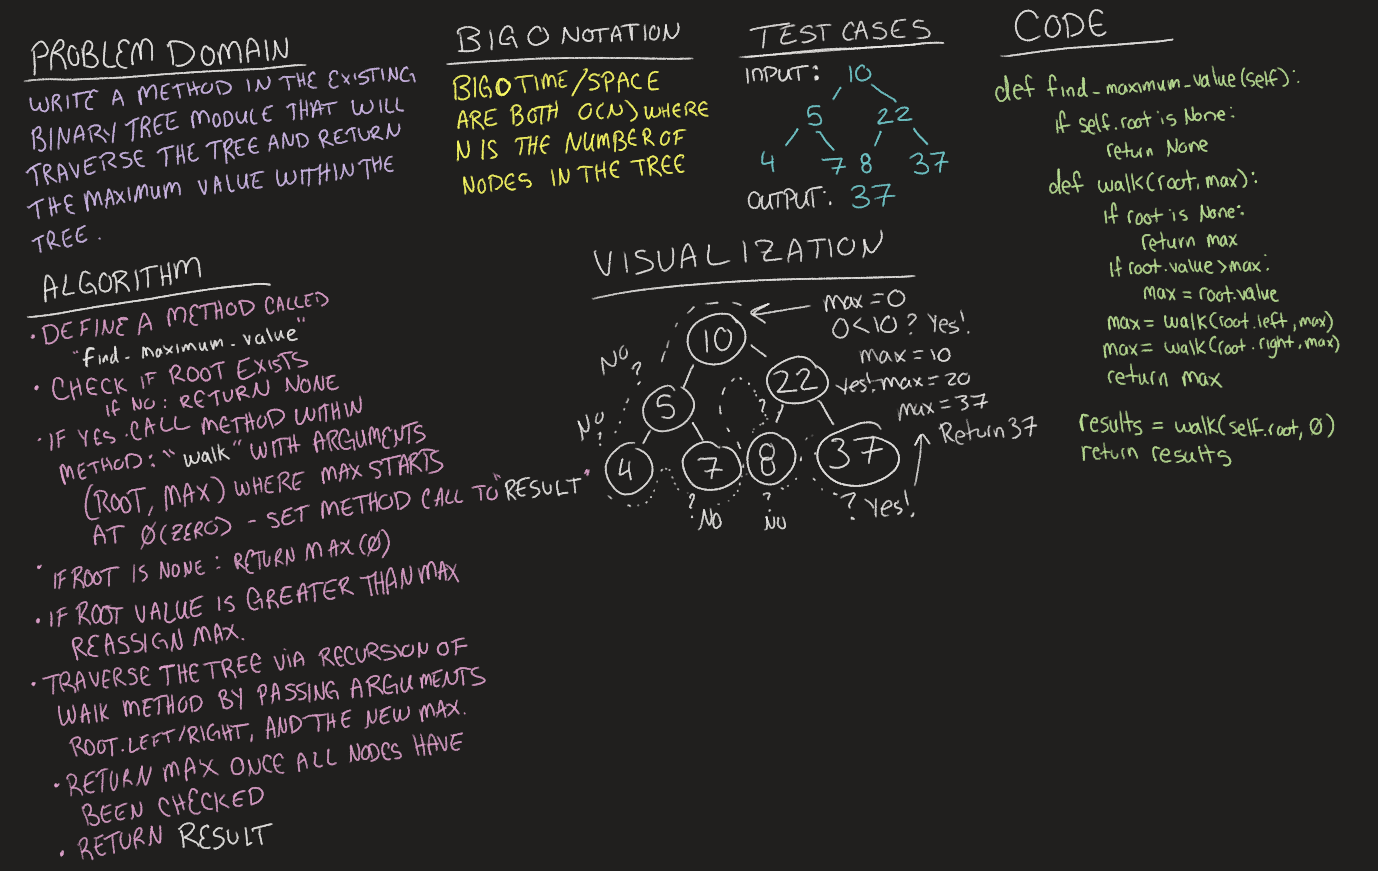 PROBLEM DOMAIN
WRITE A METHOD IN THE EXISTING
BINARY TREE MODULE THAT WILL
TRAVERSE THE TREE AND RETURN
THE MAXIMUM VALUE WITHIN THE
TREE.
ALGORITHM
• DEFINE A METHOD CALLED
"find_maximum_value"
• CHECK IF ROOT EXISTS
IF NO: RETURN NONE
• IF YES CALL METHOD WITHIN
METHOD: "walk" WITH ARGUMENTS
(ROOT, MAX) WHERE MAX STARTS
AT 0(ZERO) - SET METHOD CALL TO "RESULT"
• IF ROOT IS NONE: RETURN MAX(0)
• IF ROOT VALUE IS GREATER THAN MAX
REASSIGN MAX.
• TRAVERSE THE TREE VIA RECURSION OF
WALK METHOD BY PASSING ARGUMENTS
ROOT.LEFT/RIGHT, AND THE NEW MAX.
• RETURN MAX ONCE ALL NODES HAVE
BEEN CHECKED
• RETURN RESULT
BIG O NOTATION
BIG O TIME/SPACE
ARE BOTH O(N) WHERE
N IS THE NUMBER OF
NODES IN THE TREE
TEST CASES
INPUT: 10
5 22
4 7 8 37
OUTPUT: 37
VISUALIZATION
max = 0
10 0 < 10 ? Yes!
NO ? max = 10
22 Yes! max = 20
5 ? max = 37
NO ? Return 37
4 7 8 37
? NO ? NO ? Yes!
CODE
def find_maximum_value(self):
if self.root is None:
return None
def walk(root, max):
if root is None:
return max
if root.value > max:
max = root.value
max = walk(root.left, max)
max = walk(root.right, max)
return max
results = walk(self.root, 0)
return results